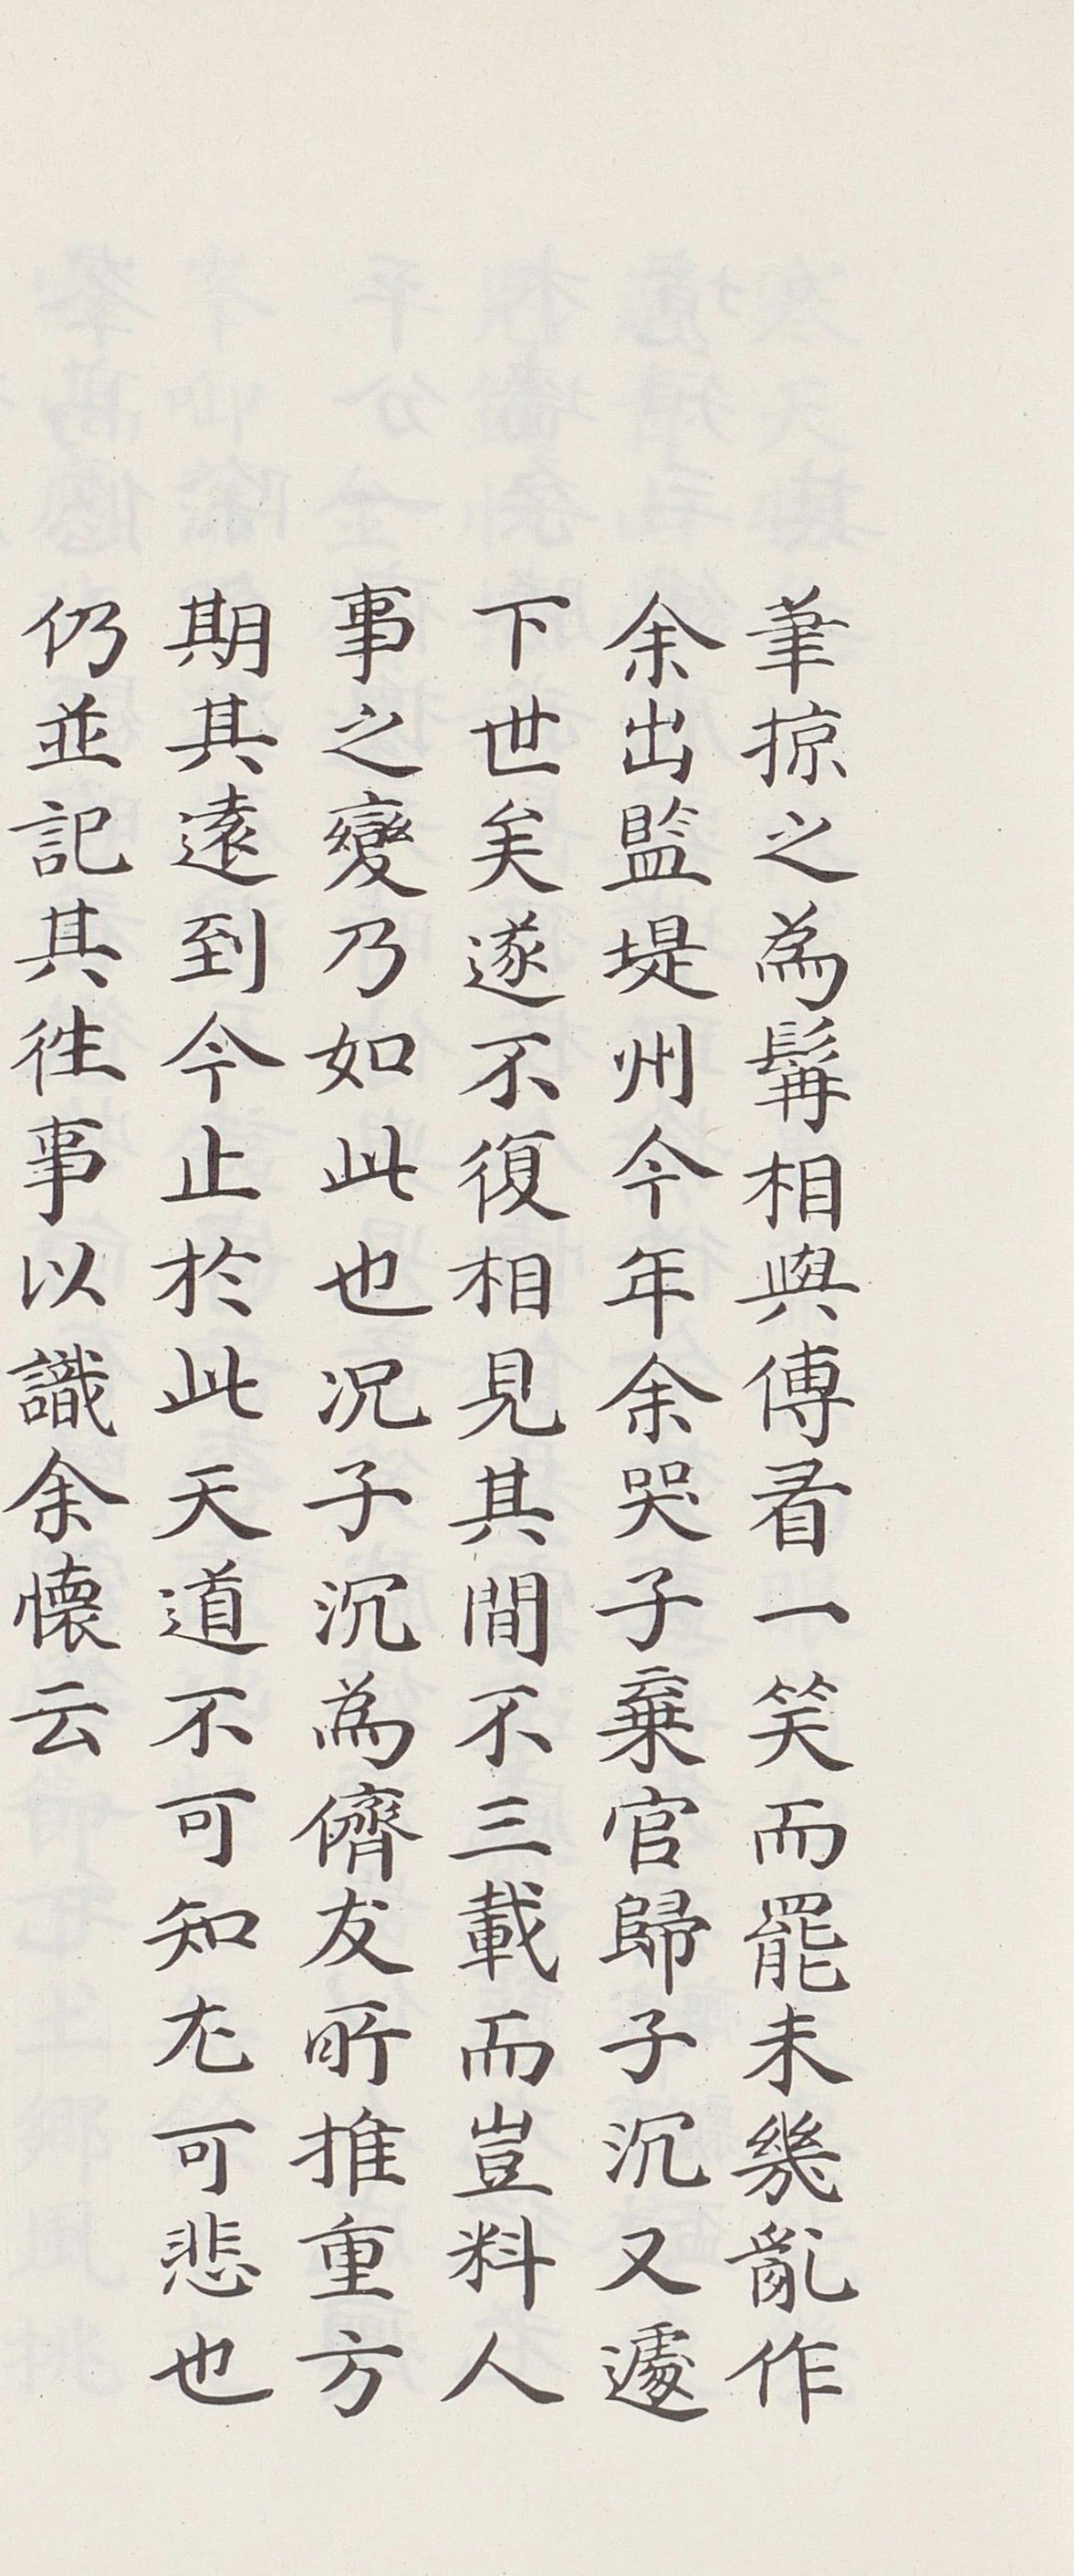 筆掠之為髯相與傳看一笑而罷未幾亂作
余出監堤州今年余哭子棄官歸子沉又遽
下世矣遂不復相見其間不三載而豈料人
事之變乃如此也况子沉為儕友所推重方
期其遠到今止於此天道不可知尤可悲也
仍並記其往事以識余懷云